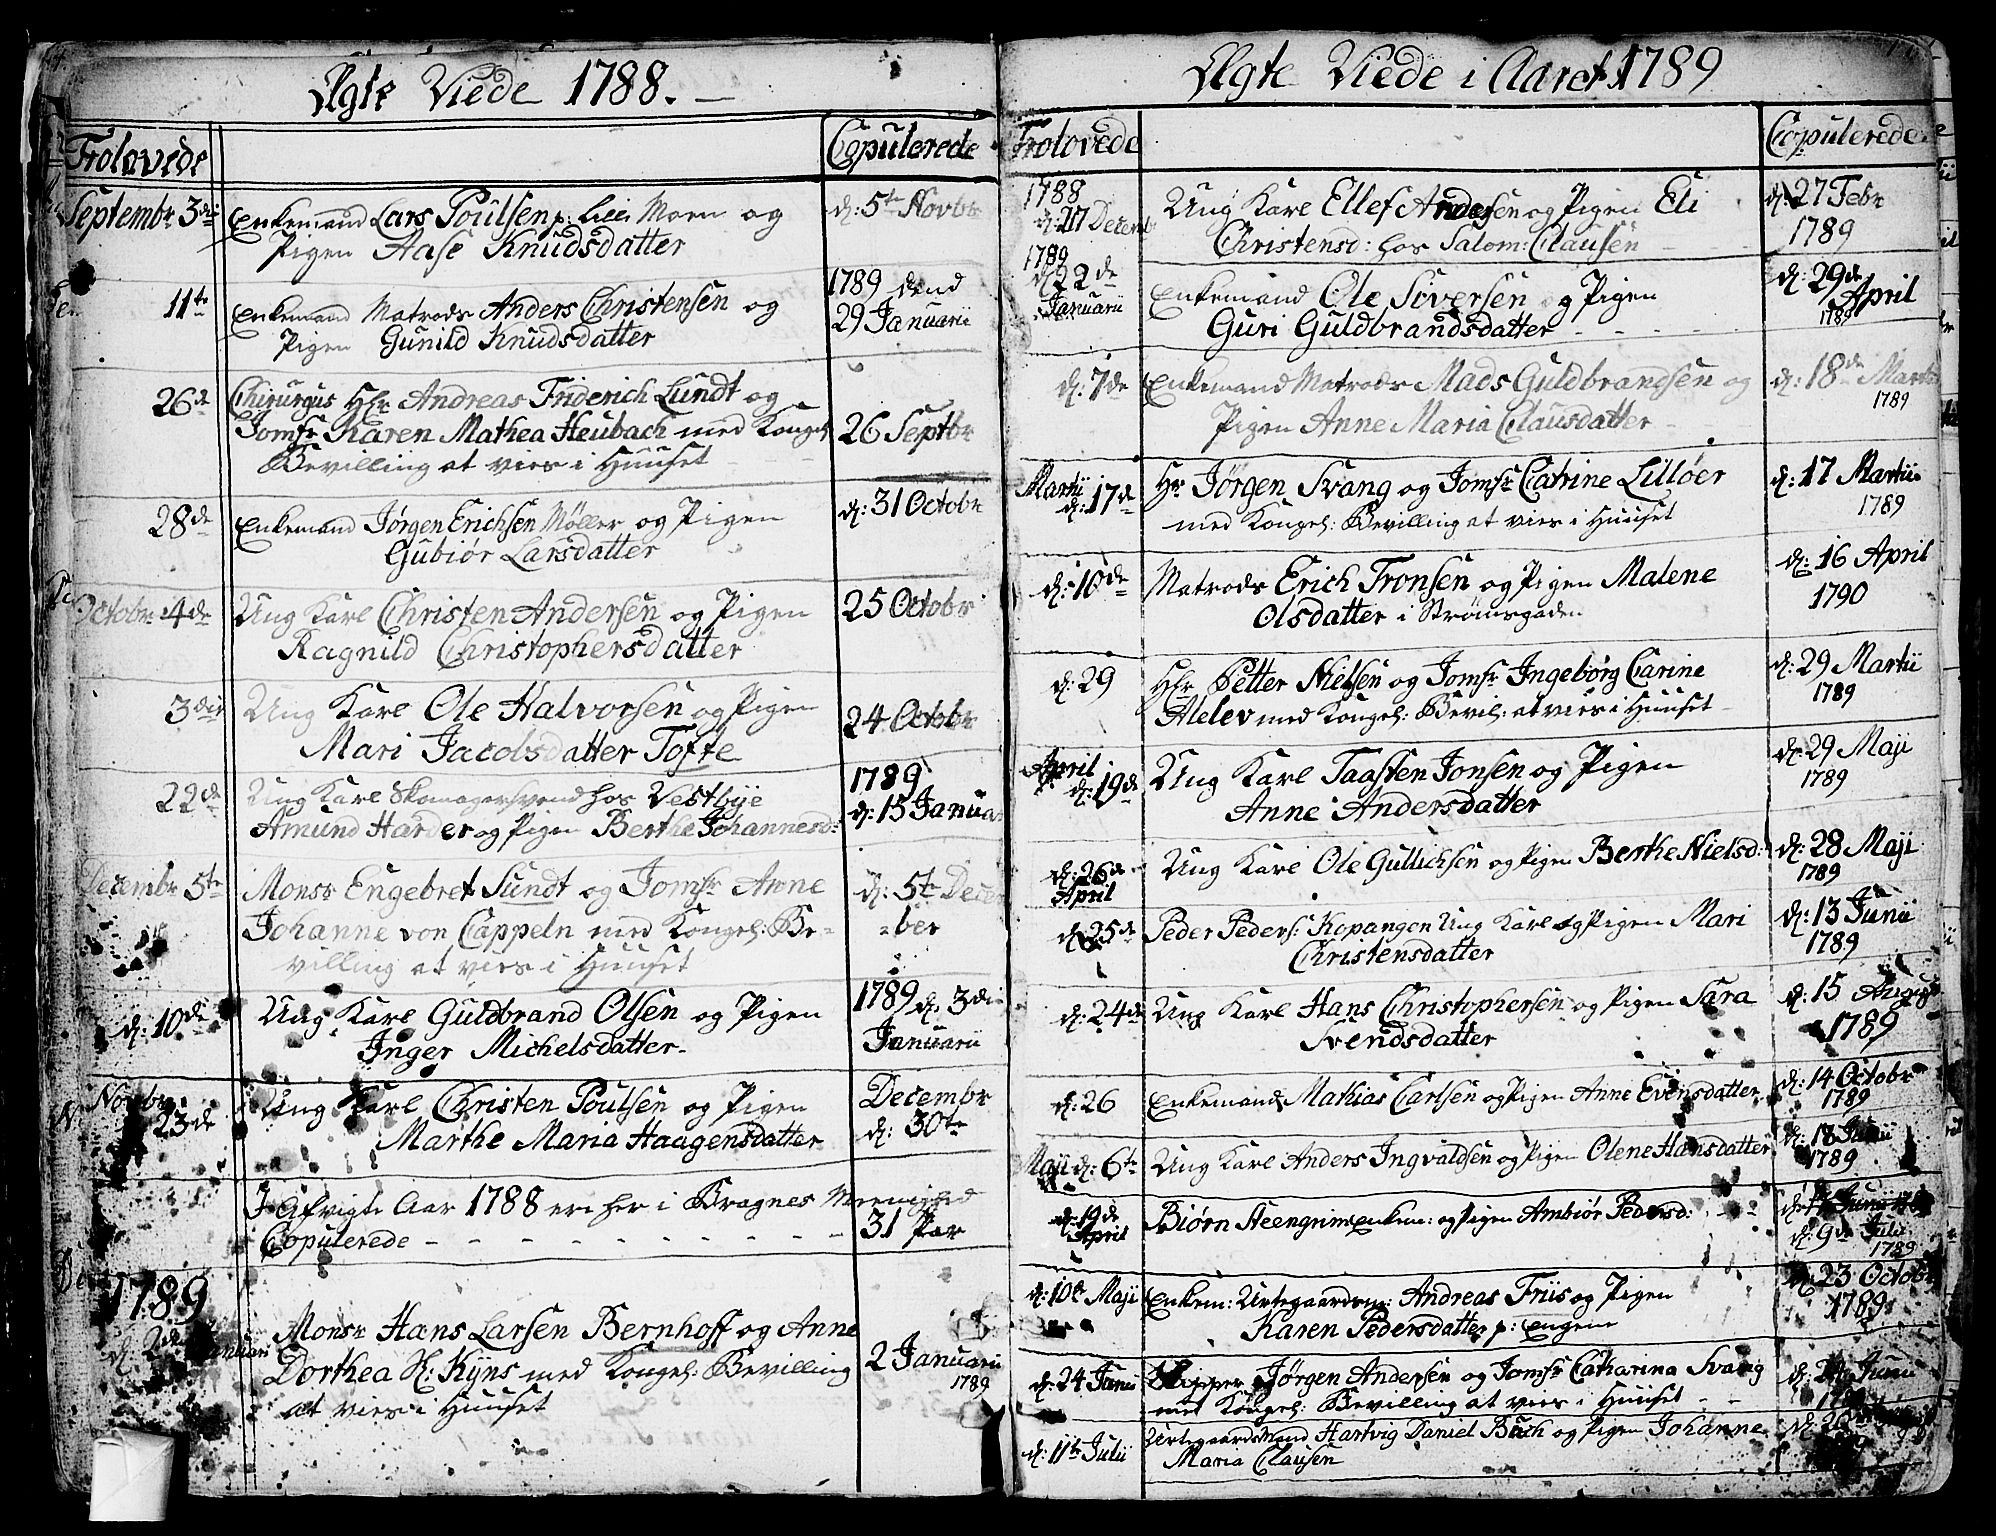 Ægte Viede 1788.
Trolovede
Copulerede
Septembr 3die
Enkemand Lars Poulsen p: Lille Moen og
Pigen Aase Knudsdatter
d: 5te Novbr
11te
Enkemand Matrods Anders Christensen og
Pigen Gunild Knudsdatter
1789 dend
29 Januarii
26de
Chirurgus Hr Andreas Friderich Lundt og
Jomfr Karen Mathea Heubach med Kongel:
Bevilling at vies i Huuset
26 Septbr
28de
Enkemand Jørgen Erichsen Møller og Pigen
Gubiør Larsdatter
d: 31 Octobr
Octobr 4de
Ung Karl Christen Andersen og Pigen
Ragnild Christophersdatter
25 Octobr
3die
Ung Karl Ole Halvorsen og Pigen
Mari Jacobsdatter Tofte
24 Octobr
22de
Ung Karl Skomagersvend hos Vestbye
Amund Harder og Pigen Berthe Johannesd:
1789
d: 15 Janua
Decembr 5te
Monsr Engebret Sundt og Jomfr Anne
Johanne von Cappeln med Kongel: Be-
villing at vies i Huuset
d: 5te Decem
-ber
d: 10de
Ung Karl Guldbrand Olsen og Pigen
Inger Michelsdatter
1789 d: 3die
Januarii
Novbr
23de
Ung Karl Christen Poulsen og Pigen
Marthe Maria Haagensdatter
Decembr
d: 30te
I Afvigte Aar 1788 ere her i Bragnes Meenighed
Copulerede - - - - - - - - -
31 Par
1789
d: 2de Januari
Monsr Hans Larsen Bernhoff og Anne
Dorthea H: Kyns med Kongel: Bevilling
at vies i Huuset
2 Januarii
1789
Ægte Viede i Aaret 1789
Trolovede
Copulerede
1788
d: 27 Decemb
Ung Karl Ellef Andersen og Pigen Eli
Christensd: hos Salom: Clausen
d: 27 Febr
1789
1789
d: 22de
Januarii
Enkemand Ole Siversen og Pigen
Guri Guldbrandsdatter - - - -
d: 29de
April
1789
d: 7de
Enkemand Matrods Mads Guldbrandsen og
Pigen Anne Maria Clausdatter
d: 18de Martii
1789
Martii
d: 17de
Hr Jørgen Svang og Jomfr Catrine Lilløer
med Kongel: Bevilling at vies i Huuset
d: 17 Martii
1789
d: 16de
Matrods Erich Tronsen og Pigen Malene
Olsdatter i Strømsgaden
d: 16 April
1790
d: 29
Hr Petter Nielsen og Jomfr Ingebørg Carine
Alelev med Kongel: Bevil: at vies i Huuset
d: 29 Martii
1789
April
d: 19de
Ung Karl Taasten Jonsen og Pigen
Anne Andersdatter
d: 29 Maji
1789
d: 26de
April
Ung Karl Ole Gullichsen og Pigen Berthe Nielsd:
d: 28 Maji
1789
d: 25de
Peder Peders: Kopangen Ung Karl og Pigen Mari
Christensdatter
d: 13 Junii
1789
d: 24de
Ung Karl Hans Christophersen og Pigen Sara
Svendsdatter
d: 15 August
1789
d: 26
Enkemand Mathias Carlsen og Pigen Anne Evensdatter
d: 14 Octobr
1789
Maji d: 6te
Ung Karl Anders Ingvaldsen og Pigen Olene Hansdatter
d: 18 Junii
1789
d: 19de
April
Biørn Steengrims enkem: og Pigen Ambiør Pedersd:
d: 9de Julii
1789
d: 10te Maji
Enkem: Urtegaardsm: Andreas Friis og Pigen
Karen Pedersdatter p: Engene
d: 23 Octobr
1789
d: 24 Junii
Skipper Jørgen Andersen og Jomfr Catharina Svang
med Kongel: Bevilling at vies i Huuset
d: 24 Junii
d: 11te Julii
Urtegaards Mand Hartvig Daniel Buch og Pigen Johanne
Maria Clausen